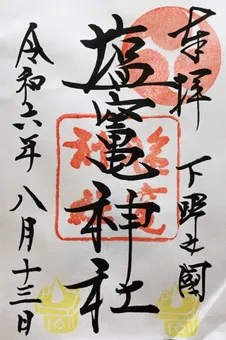 奉拝
下野之國
塩竈神社
令和六年八月十三日